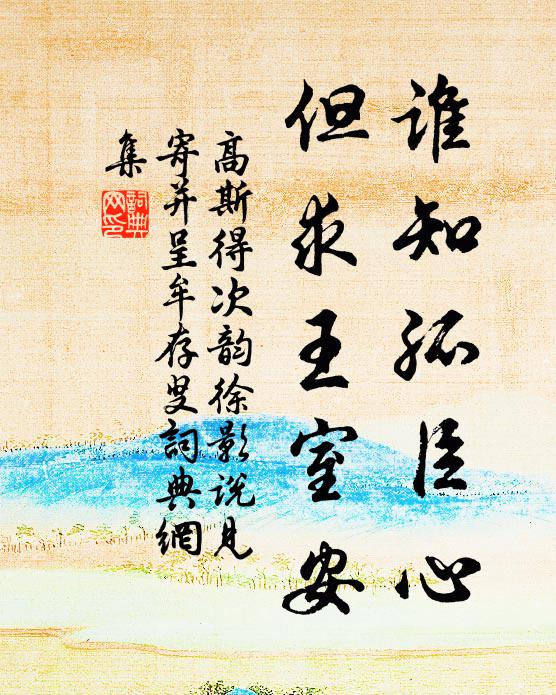 谁知孤臣心
但求王室安
高斯得次韵徐影说见
寄并呈牟存叟詞典網
集
詞典网印